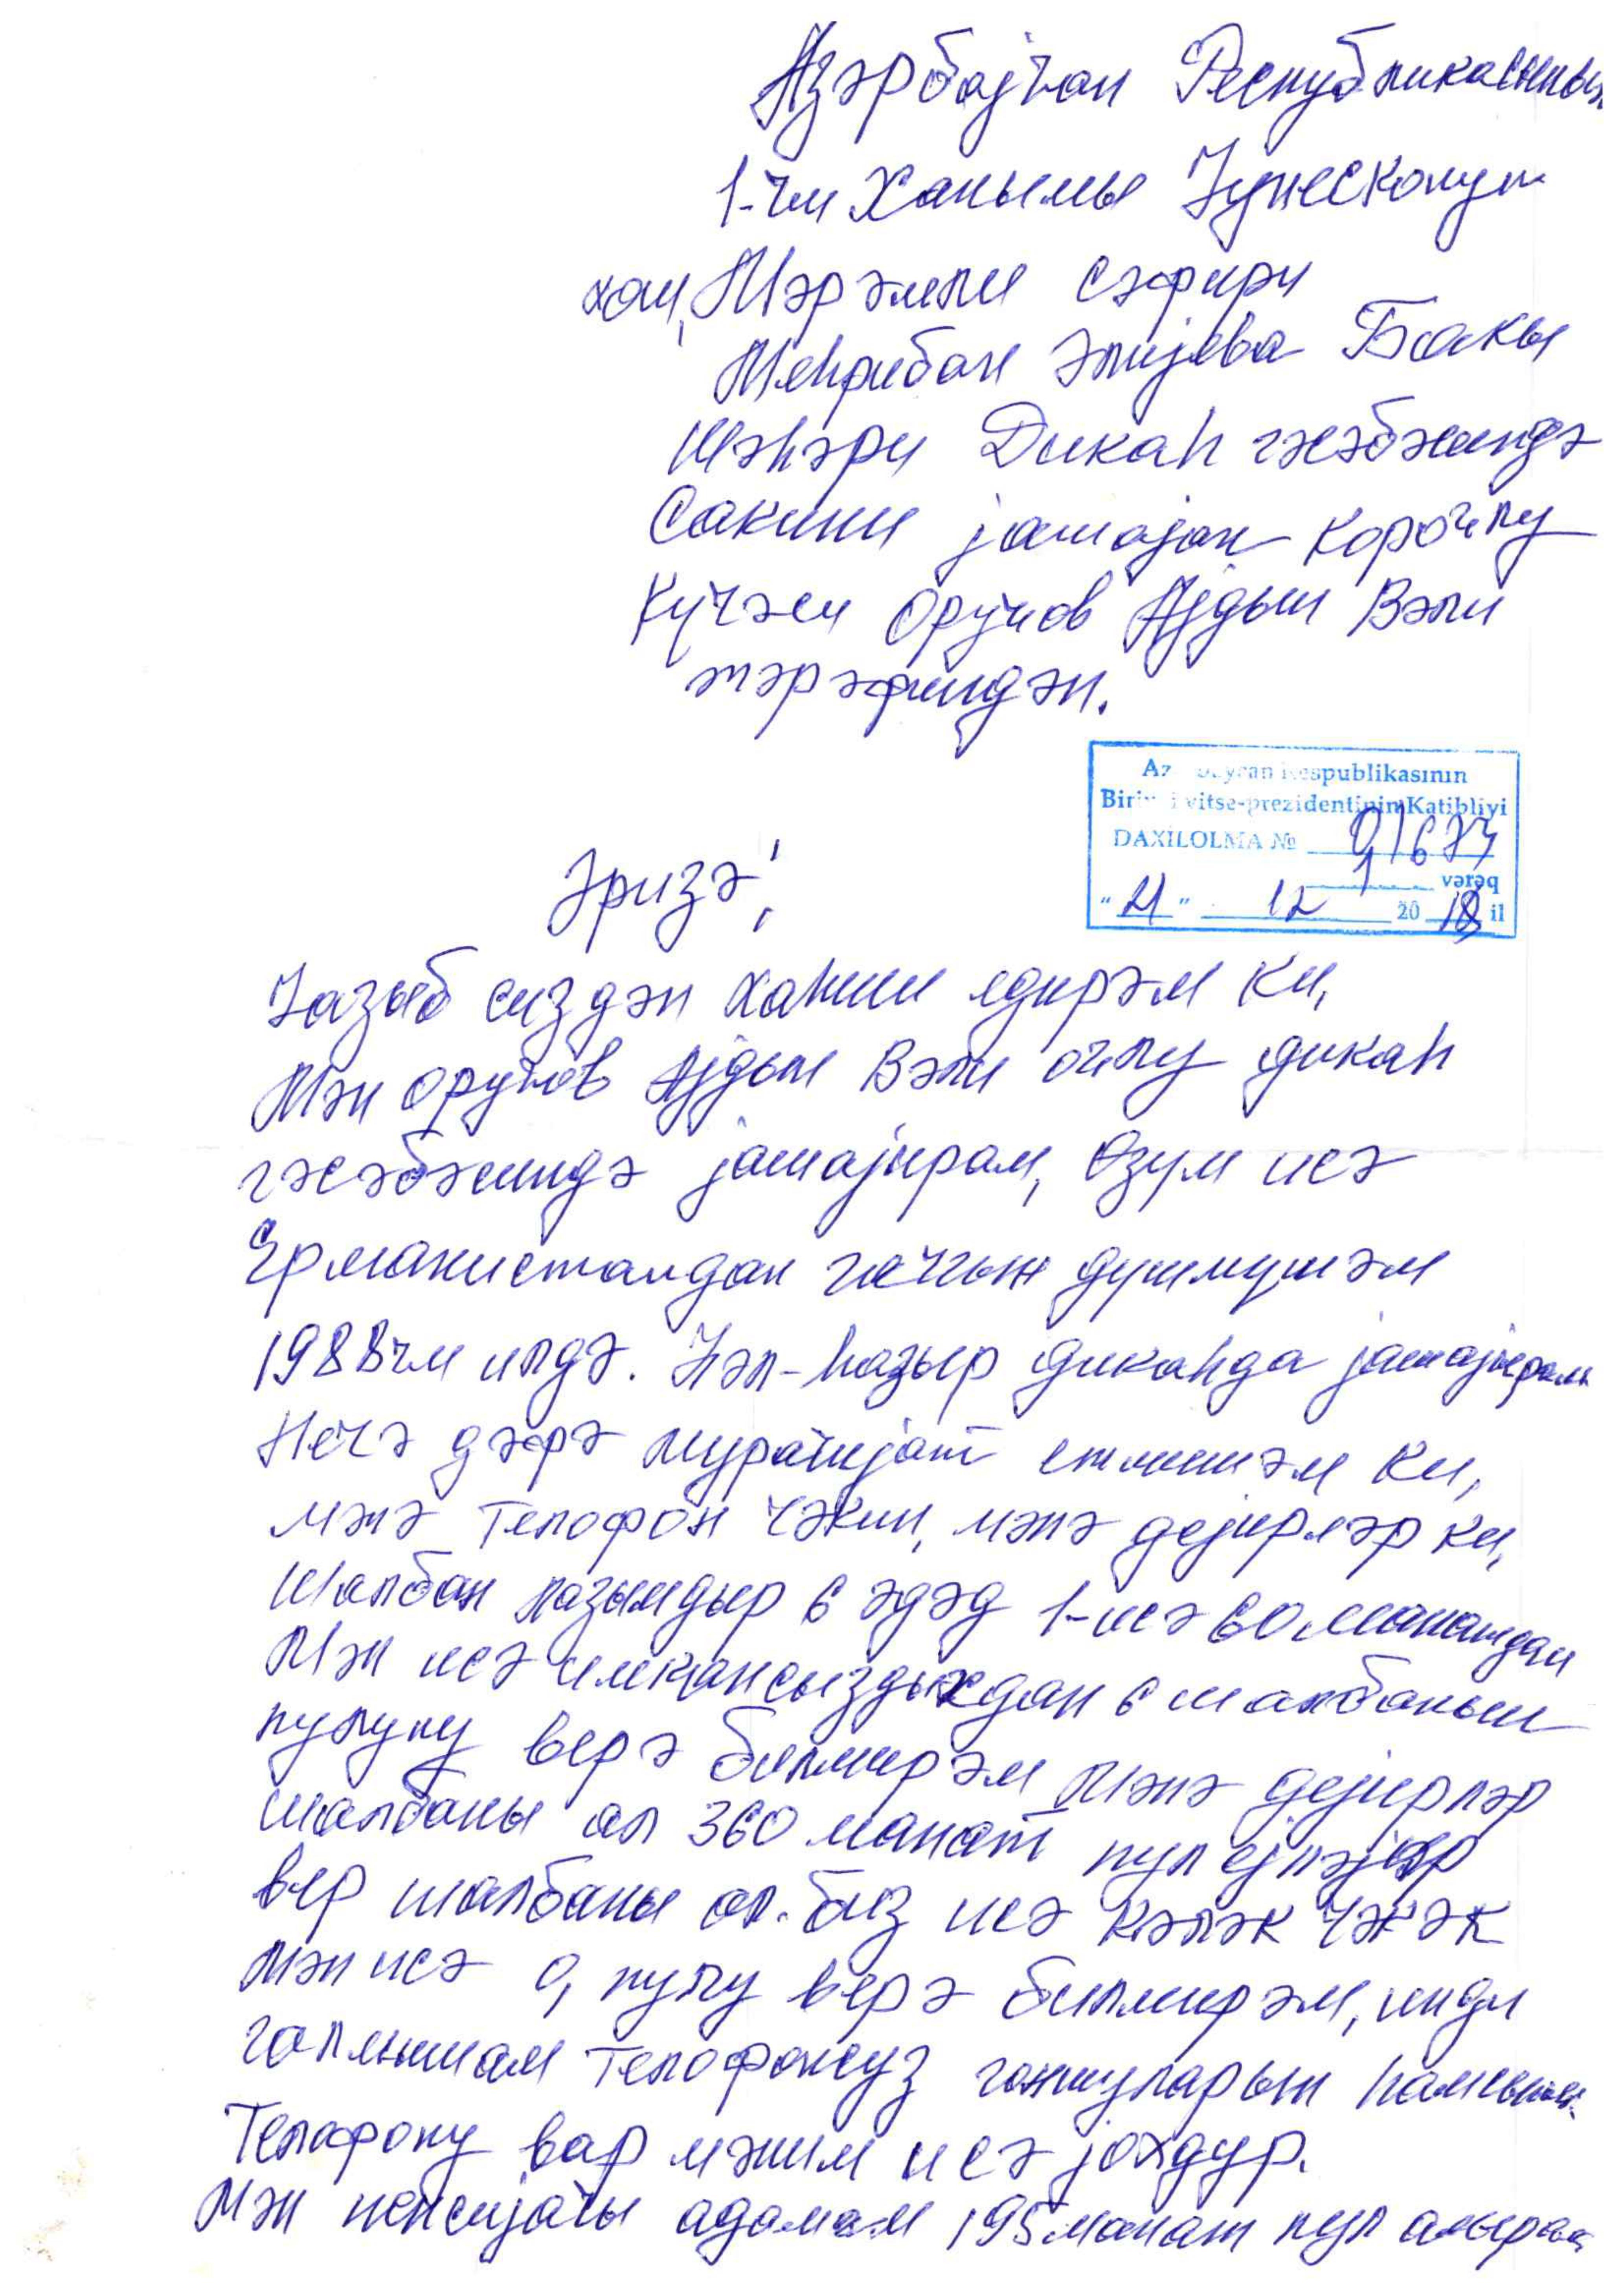 Азәрбајҹан Республикасынын
1-чи Ханымы Јунесконун
хош, Мәрамлы сәфири
Меһрибан Әлијева Бакы
шәһәри Дикаһ гәсәбәсиндә
Сакини јашајан Короғлу
Күчәси Оруҹов Ајдын Вәли
тәрәфиндән.
Azərbaycan Respublikasının
Birinci vitse-prezidentinin Katibliyi
DAXİLOLMA №
1 vərəq
"21" 12 2018 il
Әризә!
Јазыб сиздән хаһиш едирәм ки,
Мән Оруҹов Ајдын Вәли оғлу дикаһ
гәсәбәсиндә јашајырам, өзүм исә
Ермәнистандан гачгын дүшмүшәм
1988чи илдә. Һәл-һазыр дикаһда јашајырам
Нечә дәфә мурағијат етмишәм ки,
мәнә Телофон чәкин, мәнә дејирләр ки,
шалбан лазымдыр 6 әдәд 1-исә 60 манатдан
Мән исә имкансыздыхдан 6 шалбанын
пулуну верә билмирәм Мәнә дејирләр
шалбаны ал 360 манат пул ејләјир
вер шалбаны ал. биз исә кәләк чәкәк
Мән исә о, пулу верә билмирәм, инди
галмышам Телофонсуз гоншуларын һамсынын
Телафону вар мәним исә јохдур.
Мән пенсијачы адамам 195 манат пул алырам